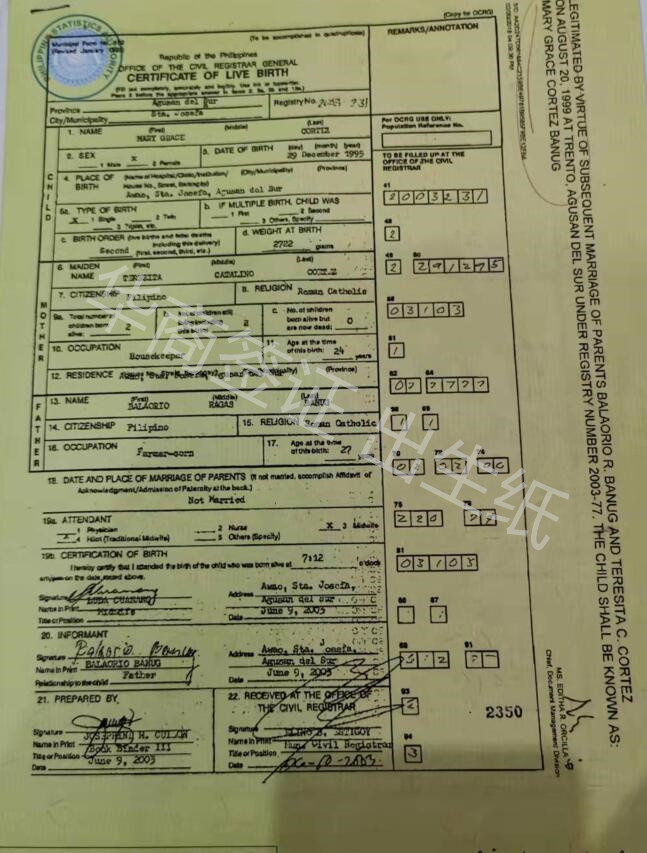 (Copy for OCRG)
PHILIPPINE STATISTICS AUTHORITY
Municipal Form No. 102
Revised January 1993
(To be accomplished in quadruplicate)
REMARKS/ANNOTATION
Republic of the Philippines
OFFICE OF THE CIVIL REGISTRAR GENERAL
CERTIFICATE OF LIVE BIRTH
Province Agusan del Sur
Registry No.
City/Municipality Sta. Josefa
1. NAME (First) (Middle) (Last)
MARY GRACE CORTEZ
For OCRG USE ONLY:
Population Reference No.
2. SEX X
1 Male 2 Female
3. DATE OF BIRTH (day) (month) (year)
29 December 1995
TO BE FILLED UP AT THE
OFFICE OF THE CIVIL
REGISTRAR
CHILD
4. PLACE OF BIRTH (Name of Hospital/Clinic/Institution/ (City/Municipality) (Province)
House No., Street, Barangay)
Awao, Sta. Josefa, Agusan del Sur
5a. TYPE OF BIRTH
X 1 Single 2 Twin
3 Triplet, etc.
b. IF MULTIPLE BIRTH, CHILD WAS
1 First 2 Second
3 Others, Specify
c. BIRTH ORDER (live births and fetal deaths
including this delivery)
Second (First, second, third, etc.)
d. WEIGHT AT BIRTH
2722 grams
MOTHER
6. MAIDEN NAME (First) (Middle) (Last)
TERESITA CATALINO CORTEZ
7. CITIZENSHIP Filipino
8. RELIGION Roman Catholic
9a. Total number children born alive: 2
2
c. No. of children born alive but are now dead: 0
10. OCCUPATION
Housekeeper
11. Age at the time of this birth: 24 years
12. RESIDENCE
FATHER
13. NAME (First) (Middle) (Last)
BALAORIO RAGAS BANUG
14. CITIZENSHIP Filipino
15. RELIGION Roman Catholic
16. OCCUPATION
Farmer-corn
17. Age at the time of this birth: 27 years
18. DATE AND PLACE OF MARRIAGE OF PARENTS (If not married, accomplish Affidavit of
Acknowledgment/Admission of Paternity at the back.)
Not Married
19a. ATTENDANT
1 Physician 2 Nurse X 3 Midwife
4 Hilot (Traditional Midwife) 5 Others (Specify)
19b. CERTIFICATION OF BIRTH
I hereby certify that I attended the birth of the child who was born alive at 7:12 o'clock
am/pm on the date stated above.
Signature
Name in Print
Title or Position Midwife
Address Awao, Sta. Josefa,
Agusan del Sur
Date June 9, 2003
20. INFORMANT
Signature
Name in Print BALAORIO BANUG
Relationship to the child Father
Address Awao, Sta. Josefa,
Agusan del Sur
Date June 9, 2003
21. PREPARED BY
Signature
Name in Print
Title or Position Book Binder III
Date June 9, 2003
22. RECEIVED AT THE OFFICE OF
THE CIVIL REGISTRAR
Signature
Name in Print
Title or Position Civil Registrar
Date
41
48
2
49 50
2 291295
56
03103
61
1
62 64
68 69
1 1
75
81
03105
86 87
88 91
93
2
94
3
2350
LEGITIMATED BY VIRTUE OF SUBSEQUENT MARRIAGE OF PARENTS BALAORIO R. BANUG AND TERESITA C. CORTEZ
ON AUGUST 20, 1999 AT TRENTO, AGUSAN DEL SUR UNDER REGISTRY NUMBER 2003-77. THE CHILD SHALL BE KNOWN AS:
MARY GRACE CORTEZ BANUG
MS. EDITHA R. ORCILLA
Chief, Document Management Division
华商签证 出生纸